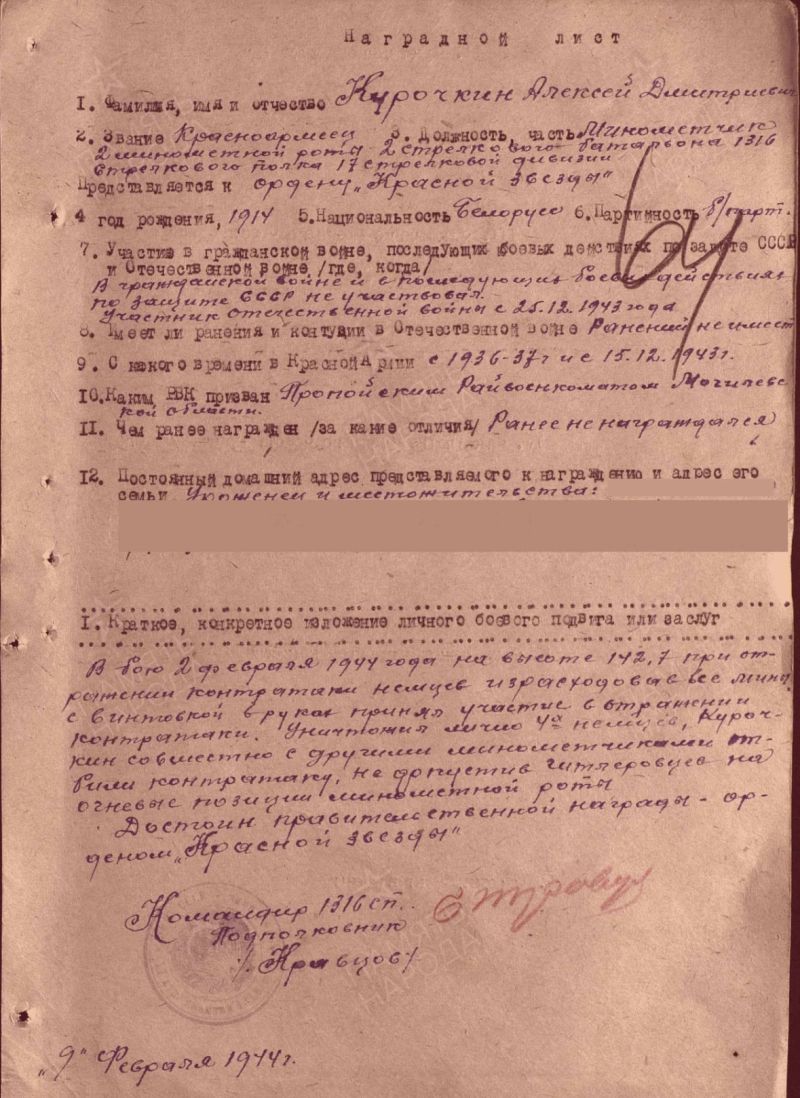 Наградной лист
1. Фамилия, имя и отчество Курочкин Алексей Дмитриевич
2. Звание Красноармеец 3. Должность, часть Минометчик
2 минометной роты 2 стрелкового батальона 1316
стрелкового полка 17 стрелковой дивизии
Представляется к ордену „Красной звезды"
4 год рождения, 1914 5. Национальность Белорусс 6. Партийность б/парт.
7. Участие в гражданской войне, последующих боевых действиях по защите СССР
и Отечественной войне /где, когда/
В гражданской войне и в последующих боевых действиях
по защите СССР не участвовал.
Участник отечественной войны с 25.12.1943 года
8. Имеет ли ранения и контузии в Отечественной войне Ранений не имеет
9. С какого времени в Красной Армии с 1936-37г и с 15.12.1943г.
10. Каким РВК призван Пропойским Райвоенкоматом Могилевс-
кой области.
11. Чем ранее награжден /за какие отличия/ Ранее не награждался
12. Постоянный домашний адрес представляемого к награждению и адрес его
семьи Уроженец и местожительства:
1. Краткое, конкретное изложение личного боевого подвига или заслуг
В бою 2 февраля 1944 года на высоте 142,7 при от-
ражении контратаки немцев израсходовав все мины
с винтовкой в руках принял участие в отражении
контратаки. Уничтожил лично 4х немцев, Куроч-
кин совместно с другими минометчиками от-
били контратаку, не допустив гитлеровцев на
огневые позиции минометной роты
Достоин правительственной награды - ор-
деном „Красной звезды"
Командир 1316 сп.
Подполковник
/Кравцов/
„9" Февраля 1944г.